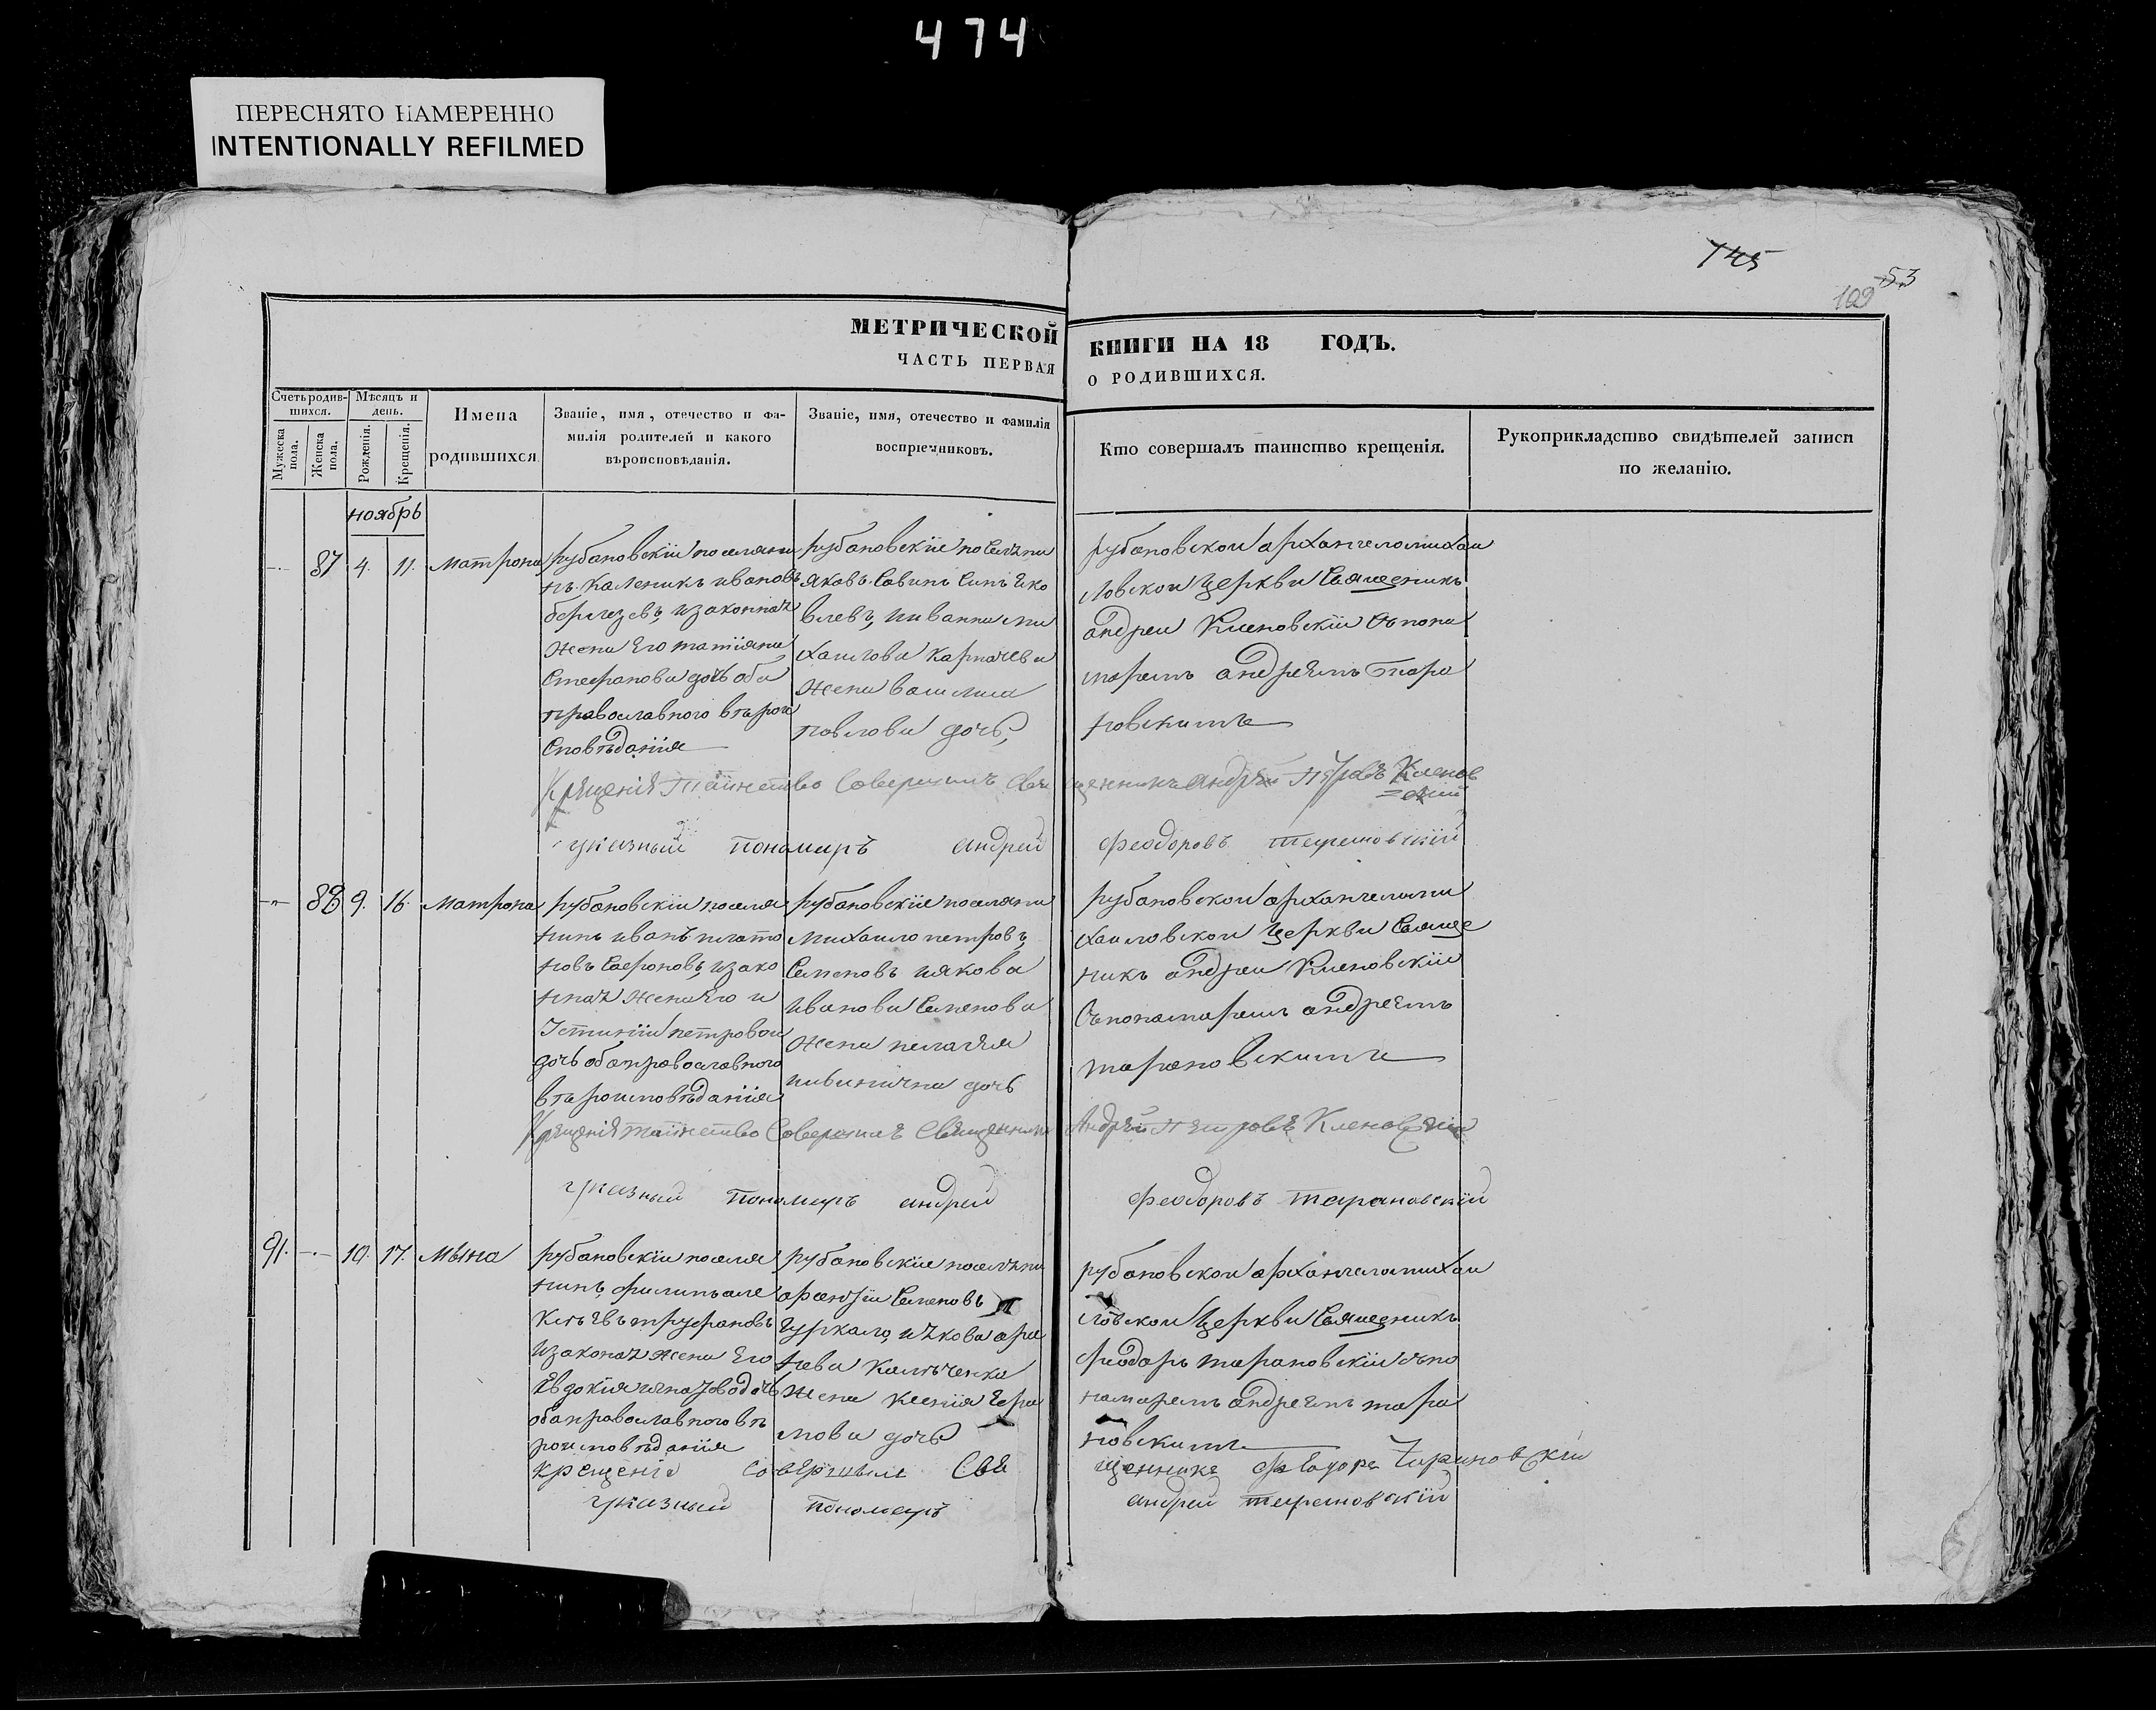 474
ПЕРЕСНЯТО НАМЕРЕННО
INTENTIONALLY REFILMED
145
109 53
МЕТРИЧЕСКОЙ КНИГИ НА 18 ГОДЪ.
ЧАСТЬ ПЕРВАЯ О РОДИВШИХСЯ.
Счетъ родив-
шихся.
Мужеска
пола.
Женска
пола.
Мѣсяцъ и
день.
Рожденія.
Крещенія.
Имена
родившихся
Званіе, имя, отечество и фа-
милія родителей и какого
вѣроисповѣданія.
Званіе, имя, отечество и фамилія
воспріемниковъ.
Кто совершалъ таинство крещенія.
Рукоприкладство свидѣтелей записи
по желанію.
ноябрь
87 4. 11. матрона
рубановскіи поселяни
нъ Каленикъ ивановъ
жена Его татіяна
Стефанова дочь оба
православного вѣрои
Сповѣданія
рубановскіе поселяни
яковъ Савинъ Синъ
жена василиса
павлова дочь,
рубановскои архангеломихаи
ловскои церкви Священикъ
андреи Кленовскіи Съпона
маремъ андреемъ тара
новскимъ
Крещенія Таинство Совершилъ Священникъ Андрей Петровъ Кленов
=скій
указный пономаръ андрей феодоровъ тарановскій
88 9. 16. матрона
рубановскіи поселя
нинъ иванъ плато
новъ Сафоновъ, изако
нная жена Его и
Устинія петрова
дочь оба православного
вѣроисповѣданія
рубановскіе поселяни
михаило петровъ
Семеновъ иякова
иванова Семенова
жена пелагея
дочь
рубановскои архангелами
хаиловскои церкви Свяще
никъ андреи Кленовскіи
Съпонамаремъ андреемъ
тарановскимъ
Крещенія таинство Совершилъ Священникъ Андрей Петровъ Кленовскій
указный пономаръ андрей феодоровъ тарановскій
91. 10. 17. Мына
рубановскіи поселя
нинъ, филипъ але
ксѣевъ труфановъ
изаконая жена Его
Евдокія дочь
оба православного вѣ
роисповѣданія
рубановскіе поселяни
Семеновъ
жена Ксенія
мова дочь
рубановскои архангеломихаи
ловскои Церкви Священикъ
феодаръ тарановскіи съпо
намаремъ андреемъ тара
новскимъ
Крещеніе Совершилъ Священникъ Тарановскій
указный пономаръ андрей тарановскій